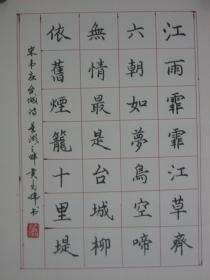 江雨霏霏江草齊
六朝如夢鳥空啼
無情最是台城柳
依舊煙籠十里堤
宋韋莊台城詩 黃